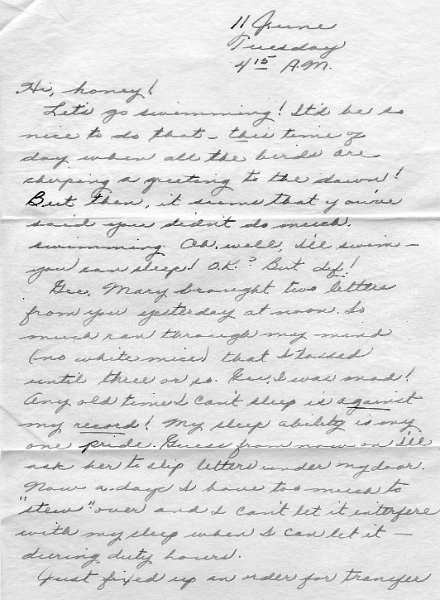 11 June
Tuesday
4¹⁵ A.M.
Hi, honey!
Let's go swimming! It'd be so
nice to do that – this time of
day when all the birds are
cherping a greeting to the dawn!
But then, it seems that you've
said you didn't do much
swimming. Oh well, I'll swim –
you can sleep! O.K.? But
Gee, Mary brought two letters
from you yesterday at noon. So
much ran through my mind
(no white mice) that I tossed
until three or so. Gee, I was mad!
Any old time I can't sleep is against
my record! My sleep ability is my
one pride. Guess from now on I'll
ask her to slip letters under my door.
Now a days I have too much to
"stew" over and I can't let it interfere
with my sleep when I can let it –
during duty hours.
Just fixed up an order for transfer